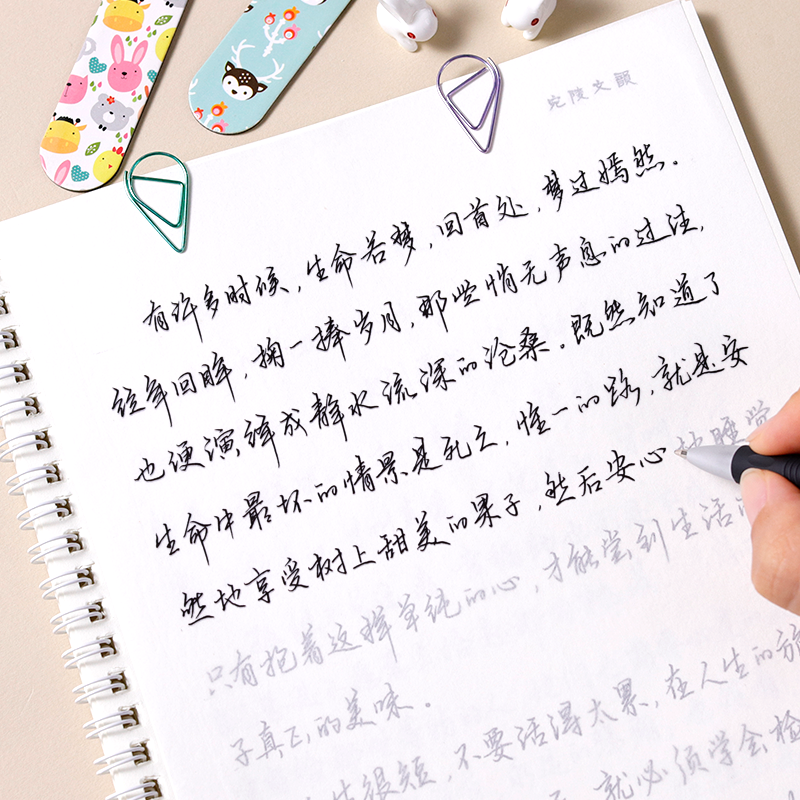 宛陵文颐
有许多时候,生命若梦,回首处,梦过嫣然。
经年回眸,掬一捧岁月,那些悄无声息的过往,
也便演绎成静水流深的沧桑。既然知道了
生命中最坏的情景是死亡,惟一的路,就是安
然地享受树上甜美的果子,然后安心地睡觉
只有抱着这样单纯的心,才能尝到生活的
子真正的美味。
生很短,不要活得太累,在人生的旅
就必须学会检